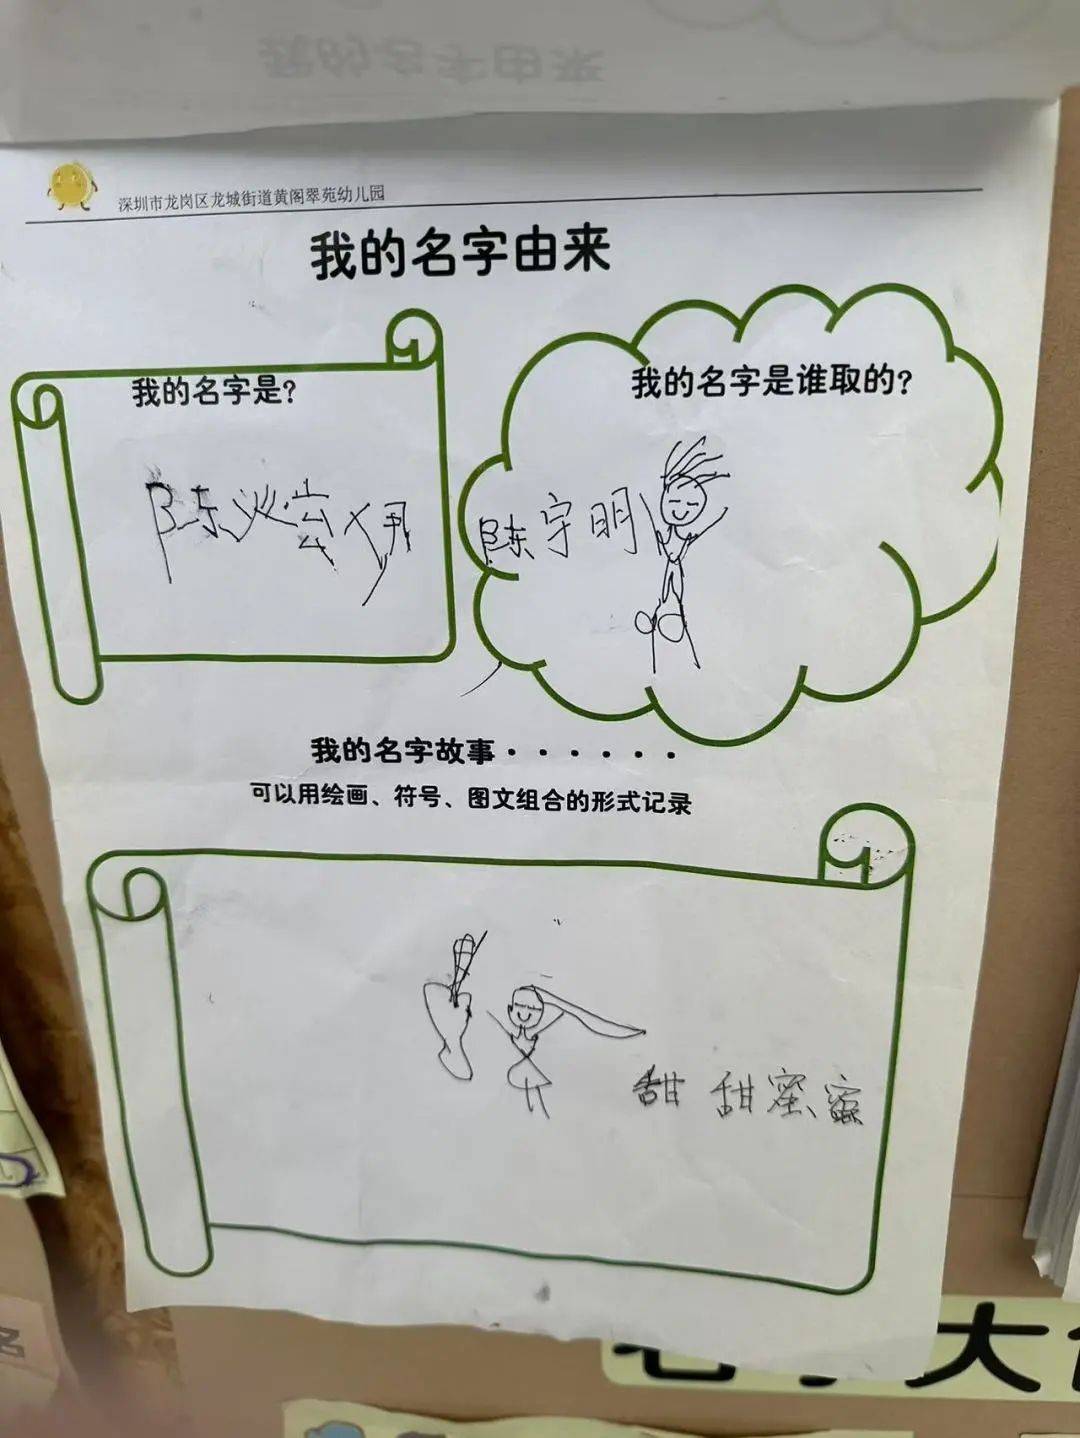 我的名字由来
深圳市龙岗区龙城街道黄阁翠苑幼儿园
我的名字由来
我的名字是?
陈
我的名字是谁取的?
陈宇明
我的名字故事······
可以用绘画、符号、图文组合的形式记录
甜甜蜜蜜
大
名